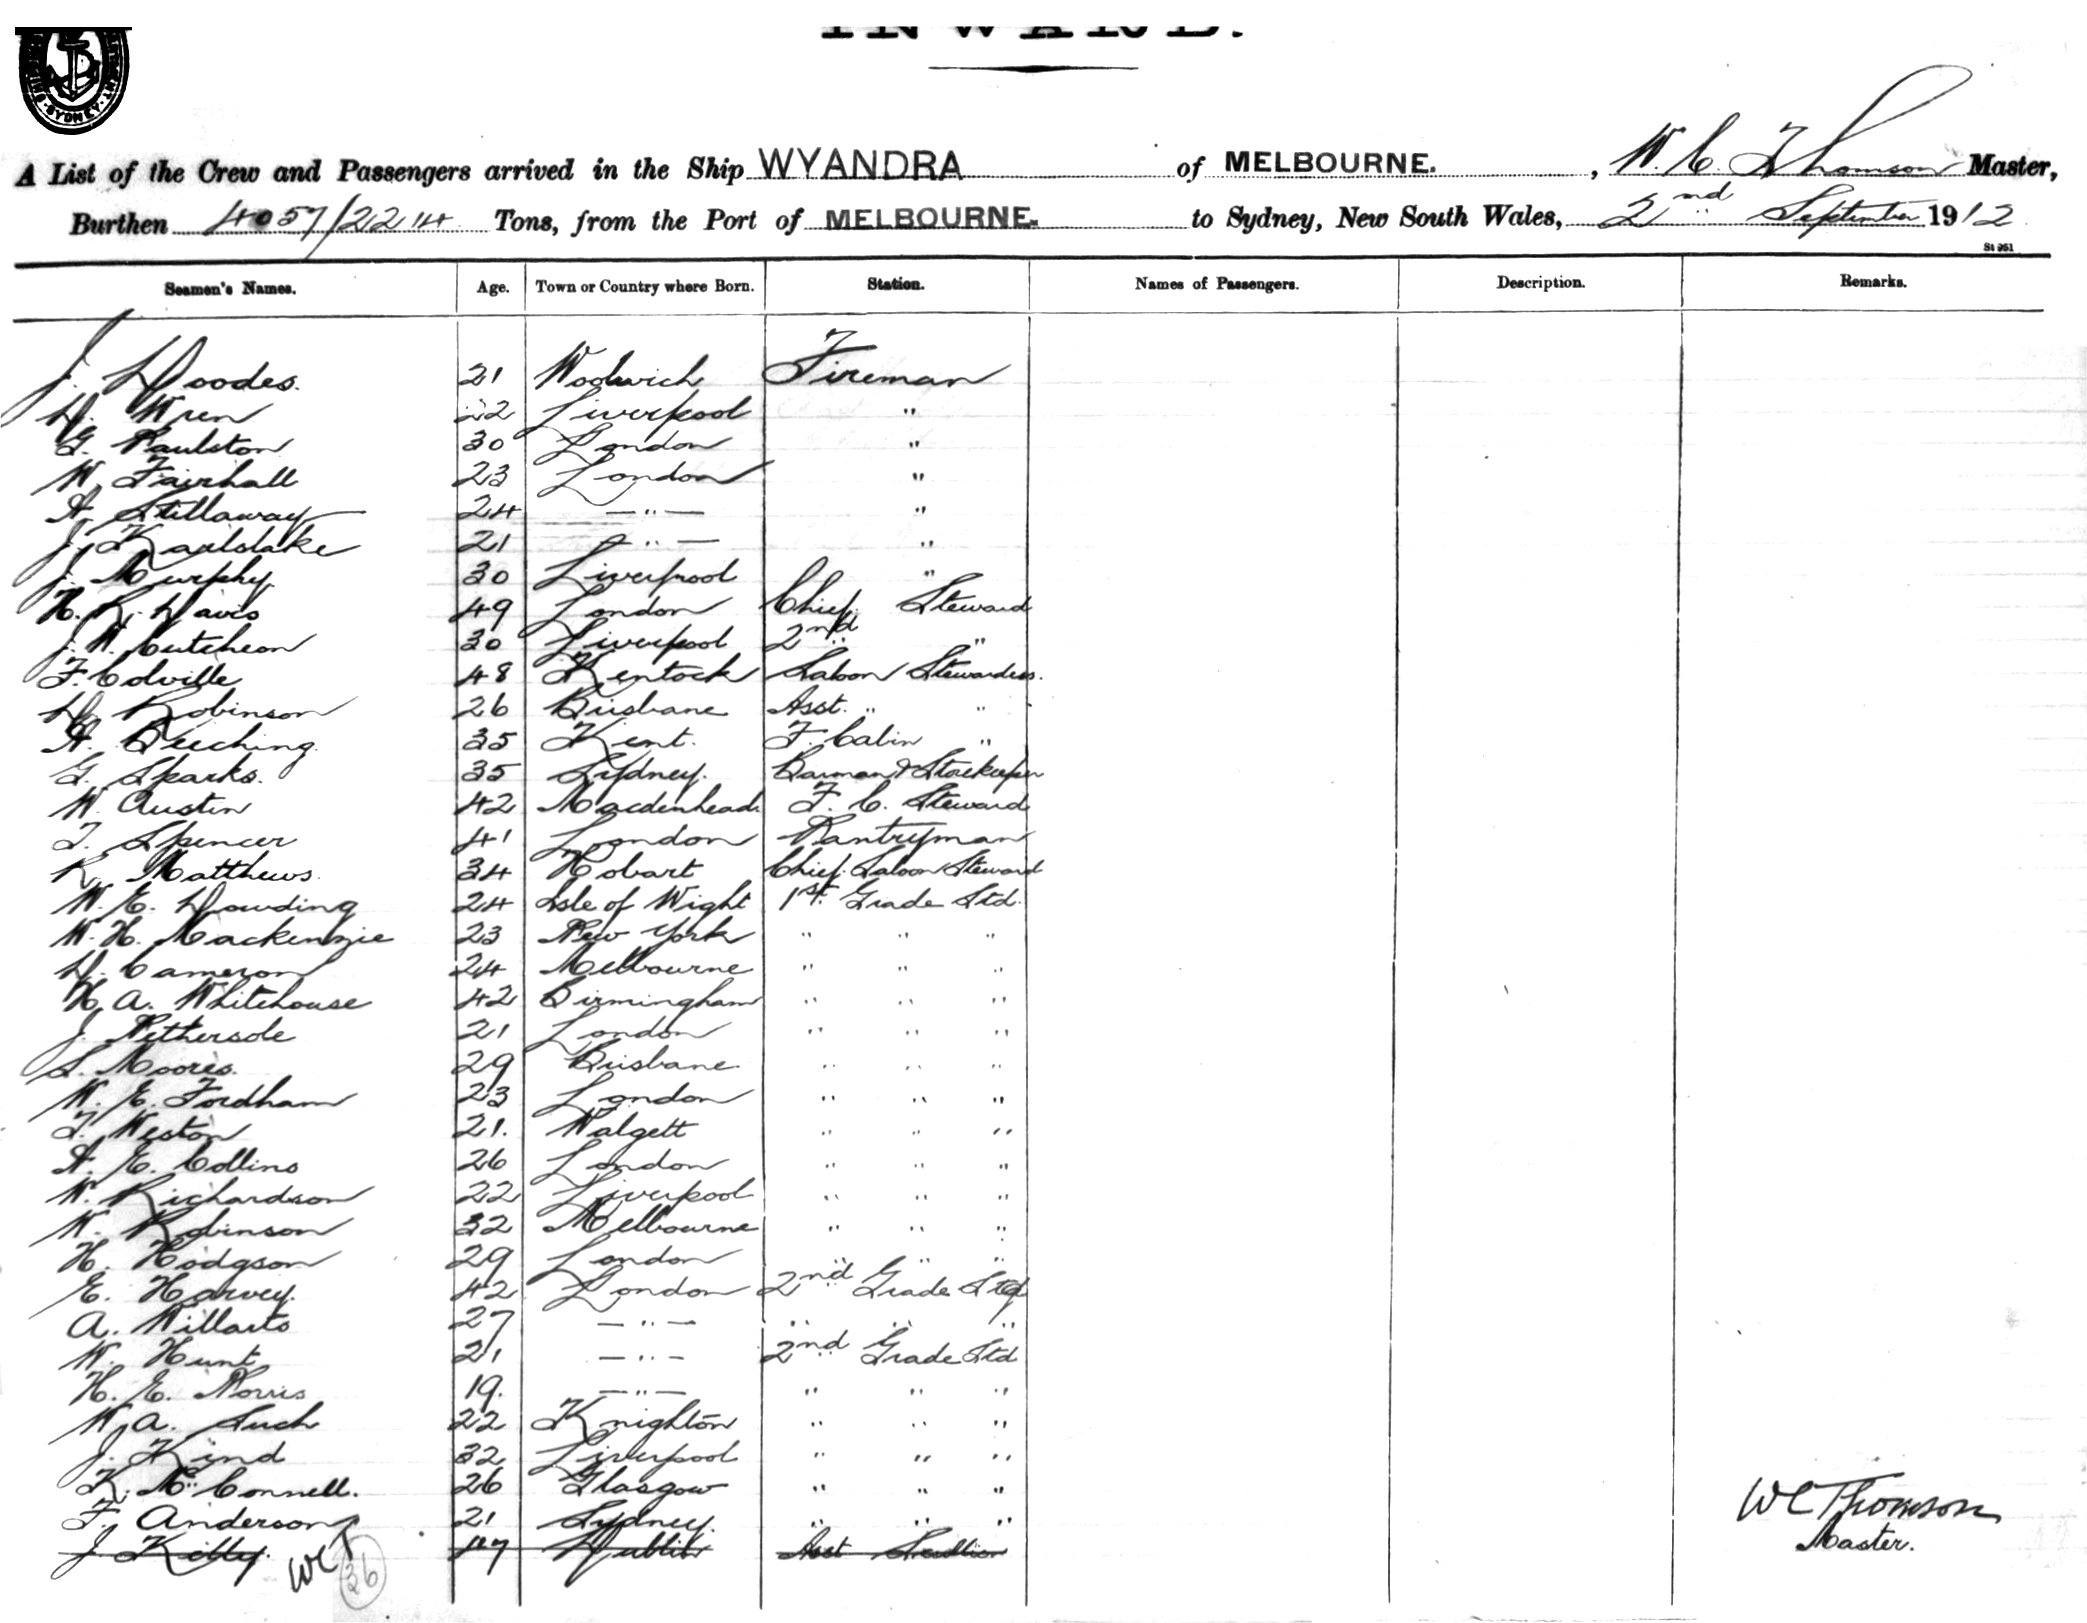 INWARD.
SYDNEY
A List of the Crew and Passengers arrived in the Ship WYANDRA of MELBOURNE. , W. C. Thomson Master,
Burthen 4057/2214 Tons, from the Port of MELBOURNE. to Sydney, New South Wales, 2nd September 1912
St 951
Seamen's Names. Age. Town or Country where Born. Station. Names of Passengers. Description. Remarks.
J. Doodes. 21 Woolwich Fireman
D. Wren 22 Liverpool "
G. Paulston 30 London "
W. Fairhall 23 London "
A. Stillaway 24 — " — "
J. Karlslake 21 — " — "
J. Murphy 30 Liverpool "
H. R. Davis 49 London Chief Steward
J. W. Cutcheon 30 Liverpool 2nd "
F. Colville 48 Kentock Saloon Stewardess.
D. Robinson 26 Brisbane Asst. " "
A. Beeching. 35 Kent. F. Cabin "
G. Sparks. 35 Sydney. Barman & Storekeeper
W. Austin 42 Maidenhead F. C. Steward
T. Spencer 41 London Pantryman
R. Matthews. 34 Hobart Chief Saloon Steward
W. E. Dowding 24 Isle of Wight 1st Grade Std.
W. H. Mackenzie 23 New York " " "
D. Cameron 24 Melbourne " " "
H. A. Whitehouse 42 Birmingham " " "
J. Pethersole 21 London " " "
S. Moores. 29 Brisbane " " "
W. E. Fordham 23 London " " "
T. Weston 21. Walgett " " "
A. E. Collins 26 London " " "
W. Richardson 22 Liverpool " " "
W. Robinson 32 Melbourne " " "
H. Hodgson 29 London " " "
E. Harvey. 42 London 2nd Grade Std
A. Willarts 27 — " — " " "
W. Hunt 21 — " — 2nd Grade Std
H. E. Norris 19. — " — " " "
W. A. Such 22 Knighton " " "
J. Kind 32 Liverpool " " "
K. McConnell. 26 Glasgow " " "
F. Anderson 21 Sydney. " " "
J Kelly. 17 Dublin Asst Scullion
WCT
36
WC Thomson
Master.